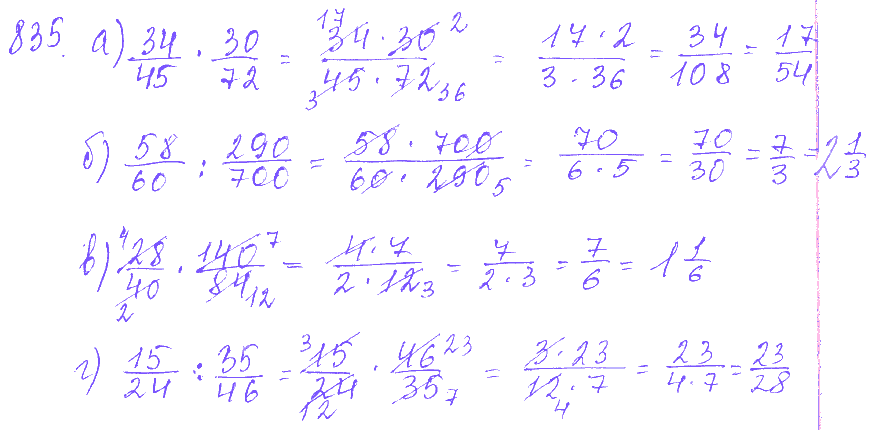 835. а) 34/45 · 30/72 = (34 · 30)/(45 · 72) 17 2 3 36 = (17 · 2)/(3 · 36) = 34/108 = 17/54
б) 58/60 : 290/700 = (58 · 700)/(60 · 290) 5 = 70/(6 · 5) = 70/30 = 7/3 = 2 1/3
в) 4 28/40 2 · 140/84 7 12 = (4 · 7)/(2 · 12) 3 = 7/(2 · 3) = 7/6 = 1 1/6
г) 15/24 : 35/46 = 3 15/24 12 · 46/35 23 7 = (3 · 23)/(12 · 7) 4 = 23/(4 · 7) = 23/28